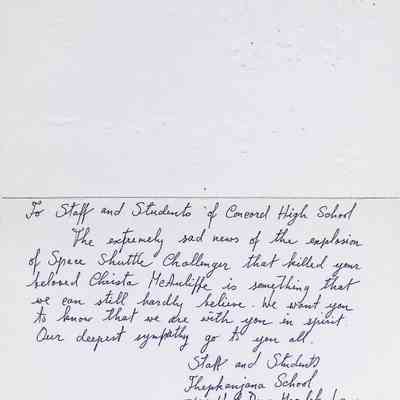 To Staff and Students of Concord High School
The extremely sad news of the explosion
of Space Shuttle Challenger that killed your
beloved Christa McAuliffe is something that
we can still hardly believe. We want you
to know that we are with you in spirit
Our deepest sympathy go to you all.
Staff and Students
Thepkanjana School